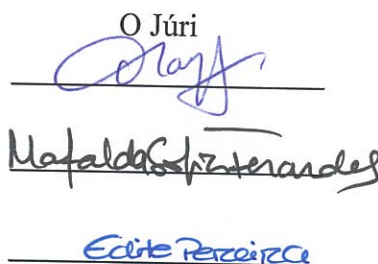 O Júri
Mafalda Sofia Fernandes
Edite Pereira